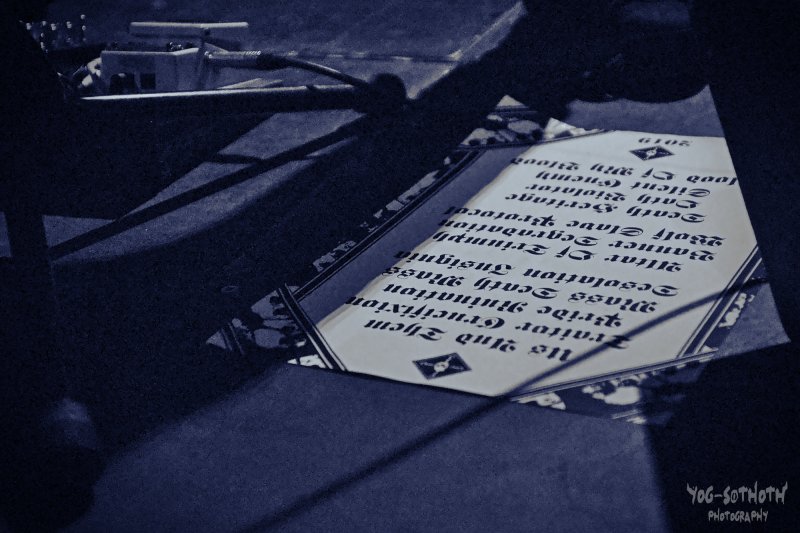 Us And Them
Traitor Crucifixion
Pride Ruination
Mass Death Mass
Desolation Insignia
Altar Of Triumph
Banner Degradation
Wolf Slave Protocol
Death Heritage
Oath Violator
Silent Enemy
Blood Of My Blood
2019
YOG-SOTHOTH
PHOTOGRAPHY